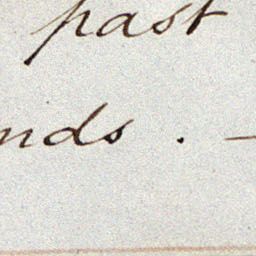 past
nds. —